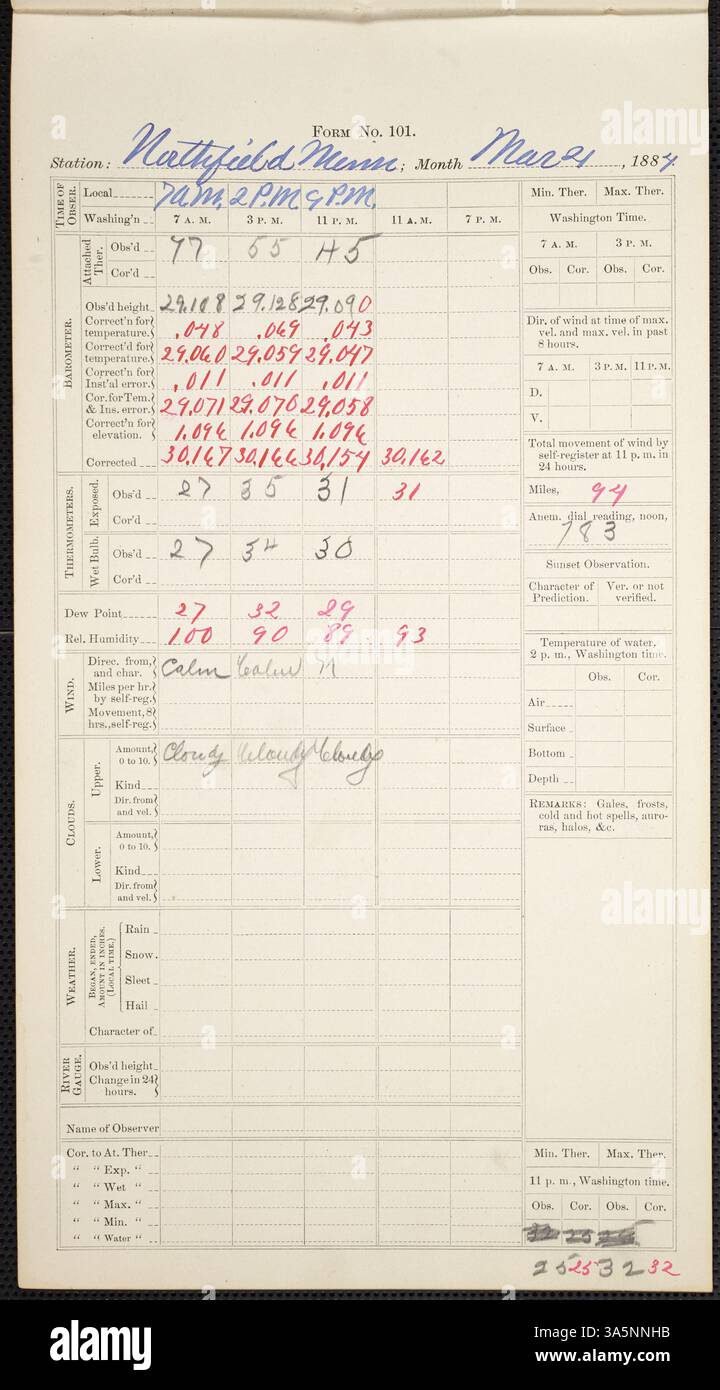 FORM No. 101.
Station: Northfield Minn; Month Mar 21, 1884.
TIME OF OBSER.
Local 7 a.m. 2 P.M. 9 P.M.
Washing'n 7 A. M. 3 P. M. 11 P. M. 11 A. M. 7 P. M.
Attached Ther.
Obs'd 47 55 45
Cor'd
BAROMETER.
Obs'd height 29.108 29.128 29.090
Correct'n for temperature. .048 .069 .043
Correct'd for temperature. 29.060 29.059 29.047
Correct'n for Inst'al error. .011 .011 .011
Cor. for Tem. & Ins. error. 29.071 29.070 29.058
Correct'n for elevation. 1.096 1.096 1.096
Corrected 30.167 30.166 30.154 30.162
THERMOMETERS.
Exposed.
Obs'd 27 35 31 31
Cor'd
Wet Bulb.
Obs'd 27 34 30
Cor'd
Dew Point 27 32 29
Rel. Humidity 100 90 89 93
WIND.
Direc. from, and char. Calm Calm N
Miles per hr. by self-reg.
Movement, 8 hrs., self-reg.
CLOUDS.
Upper.
Amount, 0 to 10. Cloudy Cloudy Cloudy
Kind
Dir. from and vel.
Lower.
Amount, 0 to 10.
Kind
Dir. from and vel.
WEATHER.
BEGAN, ENDED, AMOUNT IN INCHES. (LOCAL TIME.)
Rain
Snow.
Sleet
Hail
Character of
RIVER GAUGE.
Obs'd height
Change in 24 hours.
Name of Observer
Cor. to At. Ther.
" " Exp. "
" " Wet "
" " Max. "
" " Min. "
" " Water "
Min. Ther. Max. Ther.
Washington Time.
7 A. M. 3 P. M.
Obs. Cor. Obs. Cor.
Dir. of wind at time of max. vel. and max. vel. in past 8 hours.
7 A. M. 3 P. M. 11 P. M.
D.
V.
Total movement of wind by self-register at 11 p. m. in 24 hours.
Miles, 94
Anem. dial reading, noon,
783
Sunset Observation.
Character of Prediction. Ver. or not verified.
Temperature of water,
2 p. m., Washington time.
Obs. Cor.
Air
Surface
Bottom
Depth
REMARKS: Gales, frosts, cold and hot spells, auroras, halos, &c.
Min. Ther. Max. Ther.
11 p. m., Washington time.
Obs. Cor. Obs. Cor.
25 25 32 32
alamy
a
alamy
Image ID: 3A5NNHB
www.alamy.com